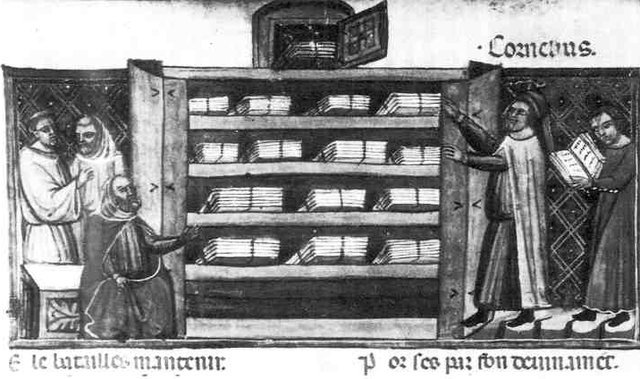 · Cornelius.
E le batailles maintenir.
P or ses par son deuinamet.